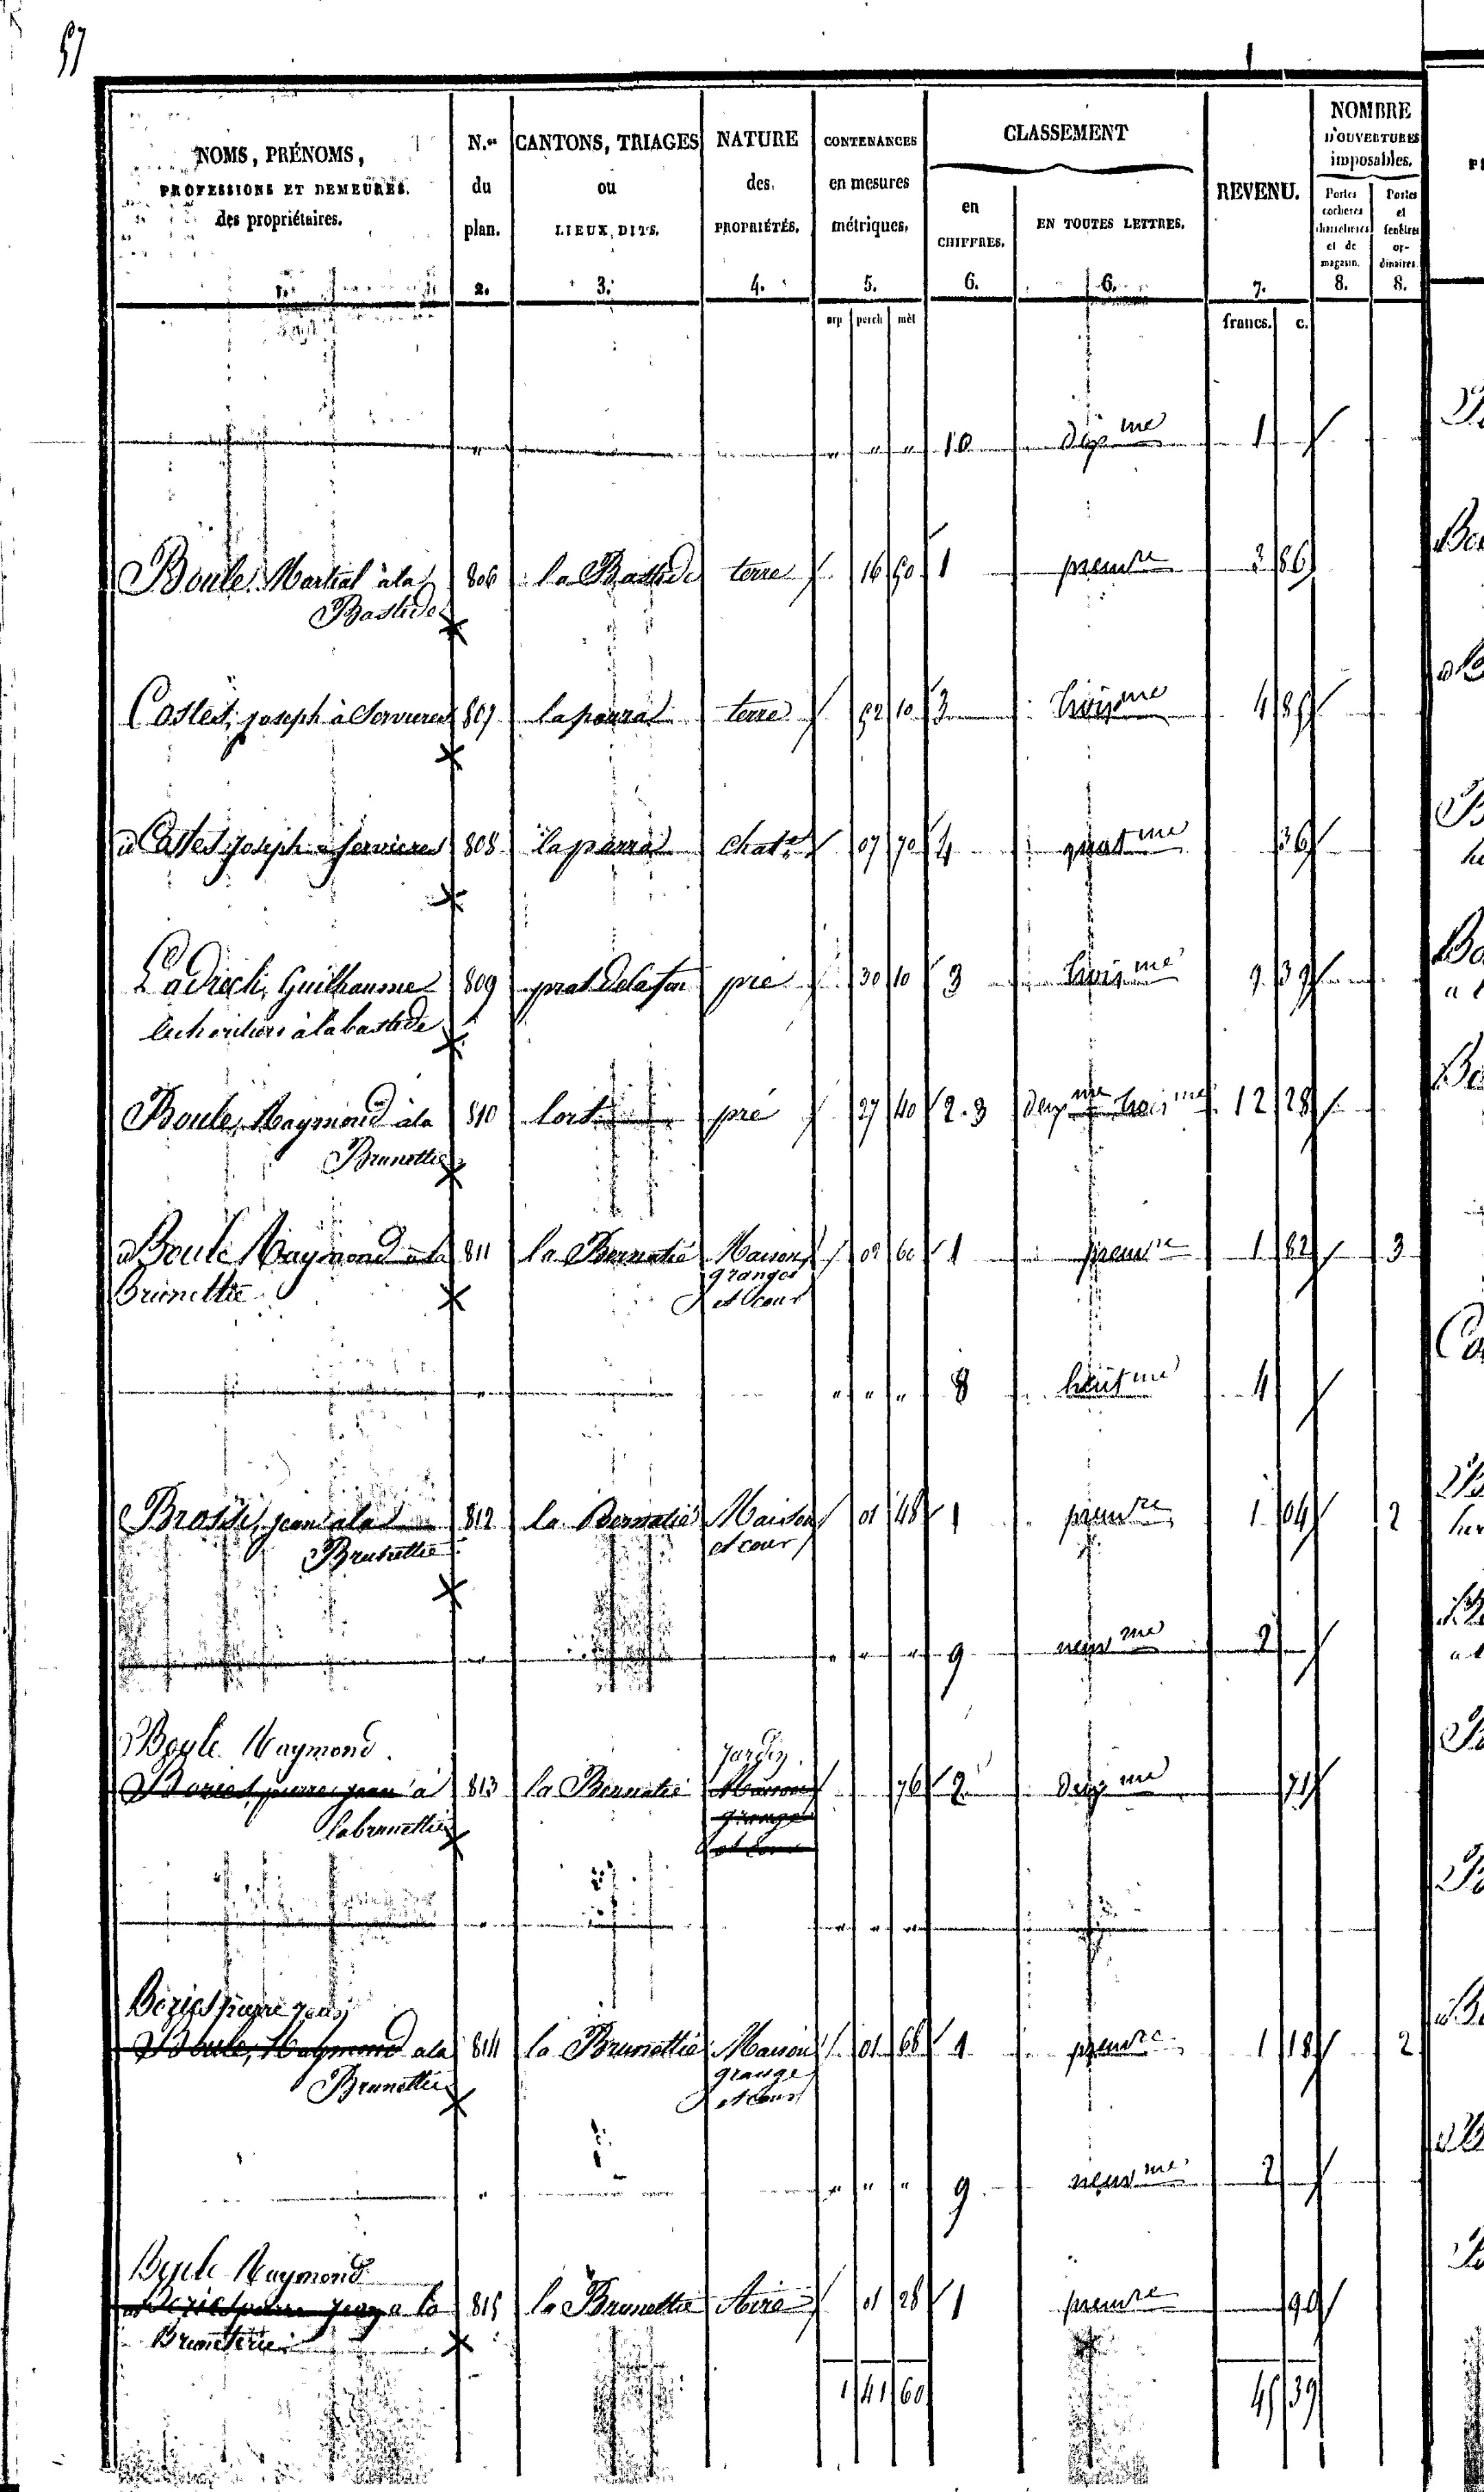 57
NOMS, PRÉNOMS, PROFESSIONS ET DEMEURES. des propriétaires. 1.
N.os du plan. 2.
CANTONS, TRIAGES ou LIEUX, DITS. 3.
NATURE des PROPRIÉTÉS. 4.
CONTENANCES en mesures métriques, 5.
CLASSEMENT
en CHIFFRES. 6.
EN TOUTES LETTRES. 6.
REVENU. 7.
NOMBRE D'OUVERTURES imposables.
Portes cocheres charretieres et de magasin. 8.
Portes et fenêtres ordinaires. 8.
arp perch mèt francs. c.
" " " " 10 dix me 1
Boule, Martial à la 806 la Bastide terre 16 50 1 premre 3 86
Bastide
Castes, joseph à Servieres 807 la parra terre 52 10 3 trois me 4 85
id Castes joseph a servieres 808 la parra chat. 07 70 4 quat me 36
Ladrech, Guilhaume 809 prat de la fon pré 30 10 3 trois me 9 39
les heritiers à la bastide
Boule, Raymond à la 810 lort pré 27 40 2.3 deux me trois me 12 28
Brunettie
id Boule Raymond a la 811 la Bernatié Maison 02 60 1 premre 1 82 3
Brunettie granges
et cour
" " " " 8 huit me 4
Brossi, jean a la 812 la Bernatié Maison 01 48 1 premre 1 04 2
Brunettie et cour
" " " " 9 neuv me 2
Boule Raymond jardin
Bories, pierre jean à 813 la Bernatié Maison 76 2 deux me 71
labrunettie grange
et cour
" " " "
Bories pierre jean
Boule, Raymond a la 814 la Brunettie Maison 01 68 1 premre 1 18 2
Brunettie grange
et cour
" " " " 9 neuv me 2
Boule Raymond
id Bories pierre jean a la 815 la Brunettie Aire 01 28 1 premre 90
Bruneterie
1 41 60 45 39